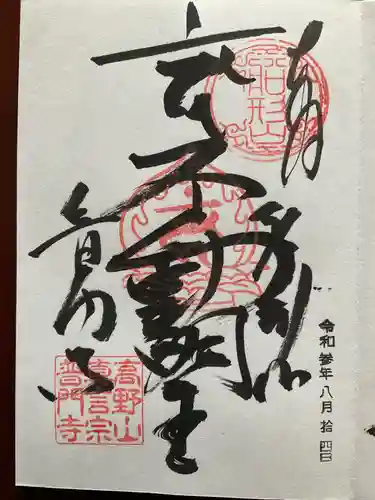 奉拝
船形山
不動明王
普門寺
高野山
真言宗
普門寺
令和参年八月拾四日